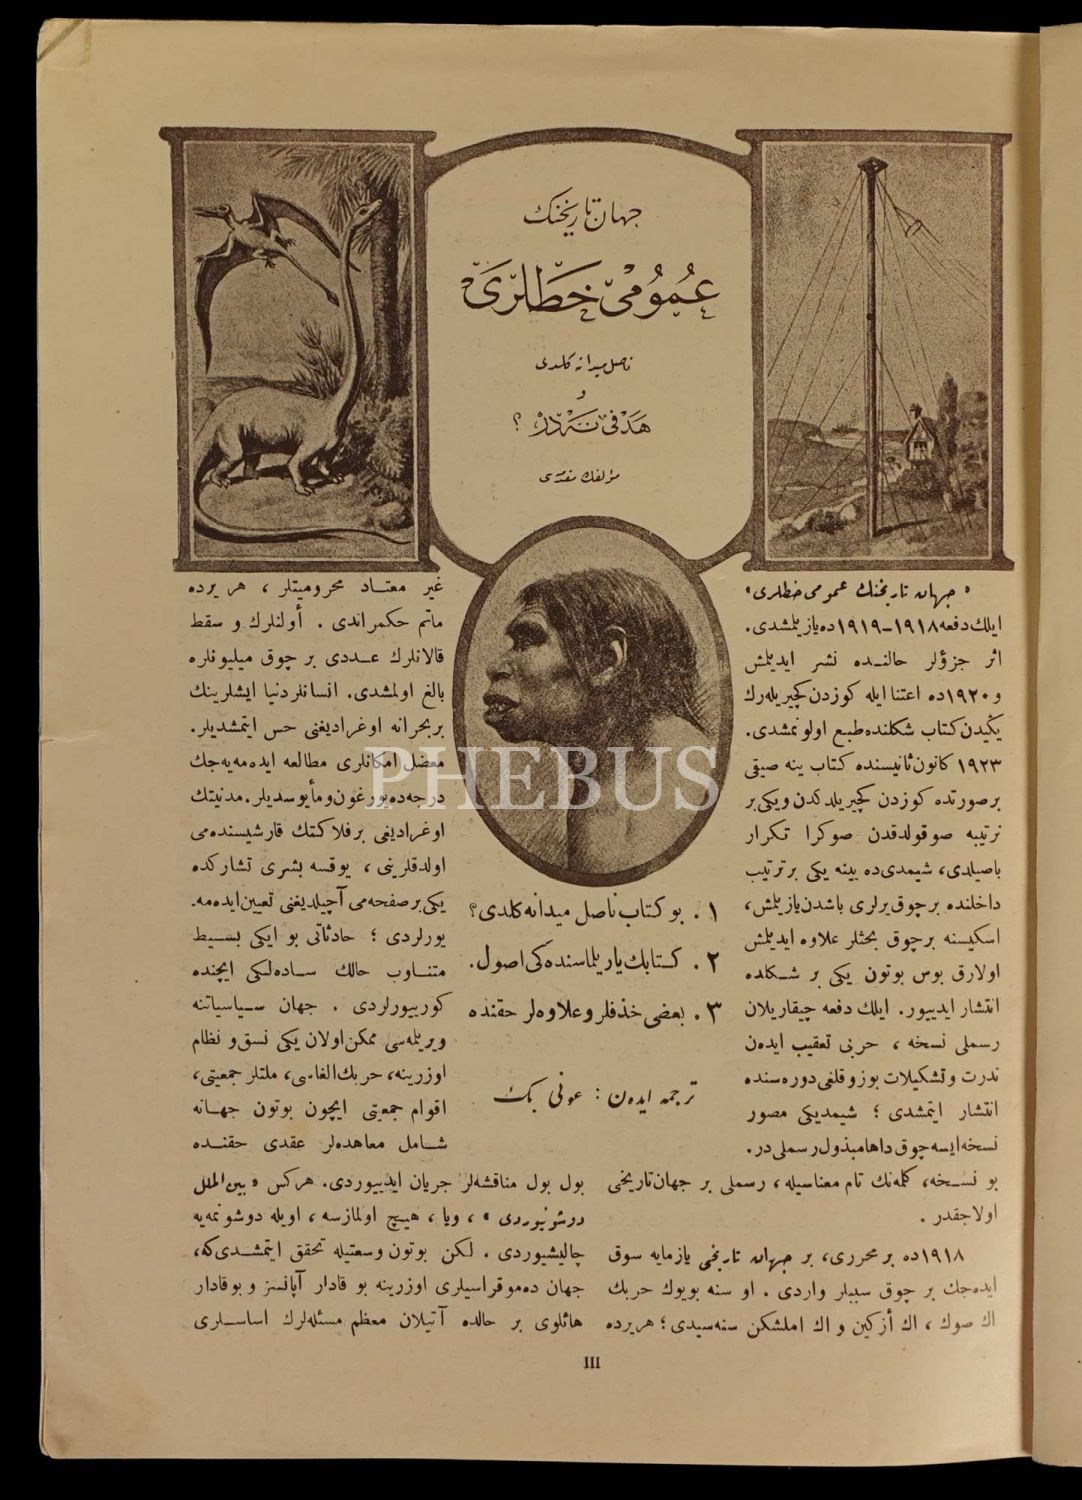 جهان تاریخنك
عُمُومْیّ خَطّلَرّیَ
ناصل میدانه کلدی
و
هَدَفی نَه دَّرْ ؟
مؤلفك مقدمه‌سی
« جهان تاریخنك عمومی خطلری »
ایلك دفعه ۱۹۱۸-۱۹۱۹ ده یازیلمشدی.
اثر جزؤلر حالنده نشر ایدیلمش
و ۱۹۲۰ ده اعتنا ایله کوزدن کچیریله‌رك
یکیدن کتاب شکلنده طبع اولونمشدی.
۱۹۲۳ کانون ثانیسنده کتاب ینه صیقی
بر صورتده کوزدن کچیریلدکدن و یکی بر
ترتیبه صوقولدقدن صوکرا تکرار
باصیلدی، شیمدی ده یینه یکی بر ترتیب
داخلنده بر چوق یرلری باشدن یازیلمش،
اسکیسنه بر چوق بحثلر علاوه ایدیلمش
اولارق بوس بوتون یکی بر شکلده
انتشار ایدییور. ایلك دفعه چیقاریلان
رسملی نسخه ، حربی تعقیب ایدن
ندرت و تشکیلات بوزوقلغی دوره‌سنده
انتشار ایتمشدی ؛ شیمدیکی مصور
نسخه ایسه چوق داها مبذول رسملی در.
بو نسخه، کلمه‌نك تام معناسیله ، رسملی بر جهان تاریخی
اولاجقدر .
۱۹۱۸ ده بر محرری، بر جهان تاریخی یازمایه سوق
ایده‌جك بر چوق سببلر واردی . او سنه بویوك حربك
اك صوك ، اك أزکین و اك املشکن سنه‌سیدی ؛ هر یرده
۱ . بو کتاب ناصل میدانه کلدی؟
۲ . کتابك یازیلماسنده کی اصول.
۳ . بعضی حذفلر و علاوه‌لر حقنده
ترجمه ایدن : عونی بك
غیر معتاد محرومیتلر ، هر یرده
ماتم حکمراندی . أولنلرك و سقط
قالانلرك عددی بر چوق میلیونلره
بالغ اولمشدی. انسانلر دنیا ایشلرینك
بر بحرانه اوغرادیغنی حس ایتمشدیلر.
معضل امکانلری مطالعه ایده‌مه‌یه‌جك
درجه‌ده یورغون و مأیوسدیلر. مدنیتك
اوغرادیغی بر فلاکتك قارشیسنده‌می
اولدقلرینی ، یوقسه بشری تشارکده
یکی بر صفحه‌می آچیلدیغنی تعیین ایده‌مه‌-
یورلردی ؛ حادثاتی بو ایکی بسیط
متناوب حالك ساده‌لکی ایچنده
کورییورلردی . جهان سیاسیاتنه
ویریلمه‌سی ممکن اولان یکی نسق و نظام
اوزرینه، حربك الغاسی، ملتلر جمعیتی،
اقوام جمعیتی ایچون بوتون جهانه
شامل معاهده‌لر عقدی حقنده
بول بول مناقشه‌لر جریان ایدییوردی. هرکس « بین‌الملل
دوشونیوردی » ، ویا ، هیچ اولمازسه ، اویله دوشونمه‌یه
چالیشیوردی . لکن بوتون وسعتیله تحقق ایتمشدی‌که،
جهان ده‌موقراسیلری اوزرینه بو قادار آپانسز و بو قادار
هائلوی بر حالده آتیلان معظم مسئله‌لرك اساسلری
III
PHEBUS